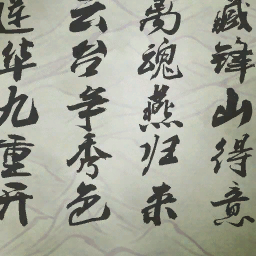 藏锋山得意
离魂燕归来
云台争秀色
莲华九重开